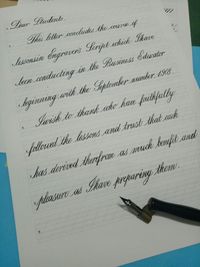 Dear Students:
This letter concludes the course of
lessons in Engraver's Script which I have
been conducting in the Business Educator
beginning with the September number, 1908.
I wish to thank who have faithfully
followed the lessons and trust that each
has derived therefrom as much benefit and
pleasure as I have preparing them.